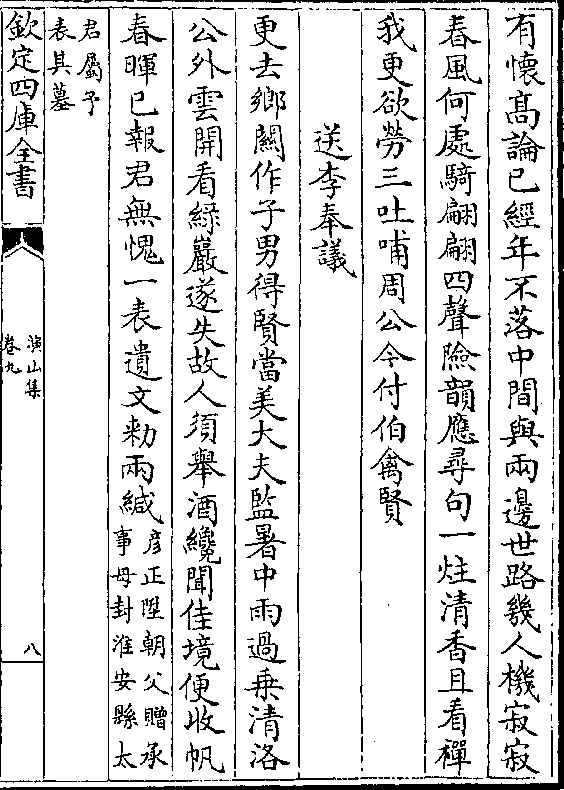 有懷髙論已經年不落中間與兩邊世路幾人機寂寂
春風何處騎翩翩四聲險韻應尋句一炷清香且看禪
我更欲勞三吐哺周公今付伯禽賢
送李奉議
更去鄉闗作子男得賢當美大夫監暑中雨過乗清洛
公外雲開看緑巖遂失故人須舉酒纔聞佳境便收帆
春暉已報君無愧一表遺文勑兩緘彦正陞朝父贈承
事母封淮安縣太
君屬予
表其墓
欽定四庫全書
演山集
卷九
八